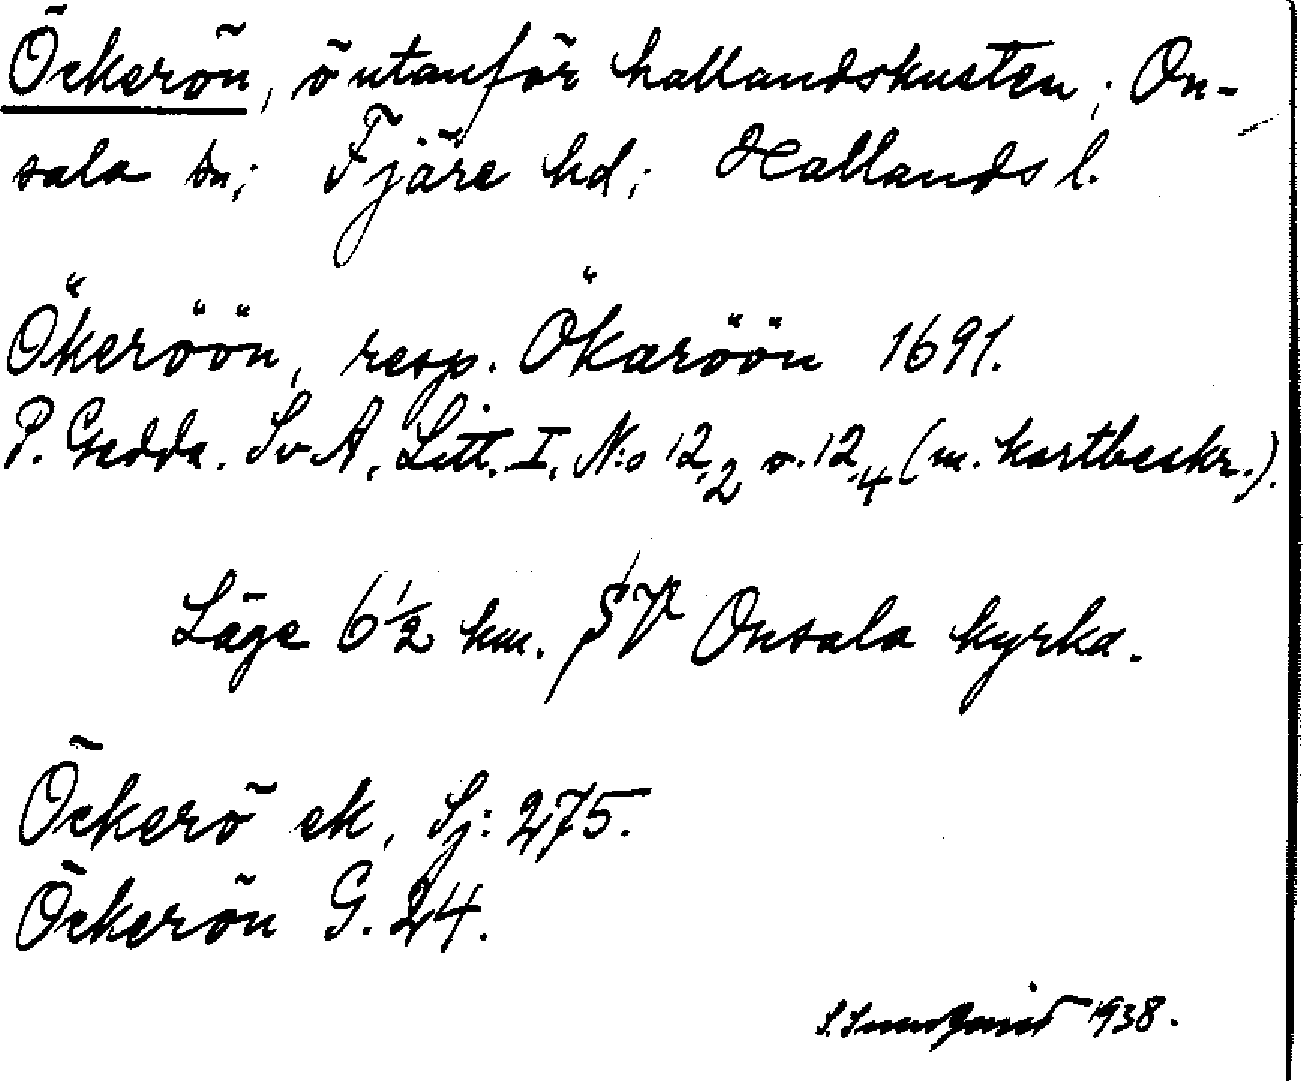 Öckerön, ö utanför hallandskusten; On-
sala sn; Fjäre hd; Hallands l.
Ökeröön, resp. Ökaröön 1691.
P. Gedda. SvA, Litt. I, N:o 12,2 o. 12,4 (m. kartbeskr.).
Läge 6 1/2 km. SV Onsala kyrka.
Öckerö ek, Sj: 275.
Öckerön G. 24.
1938.